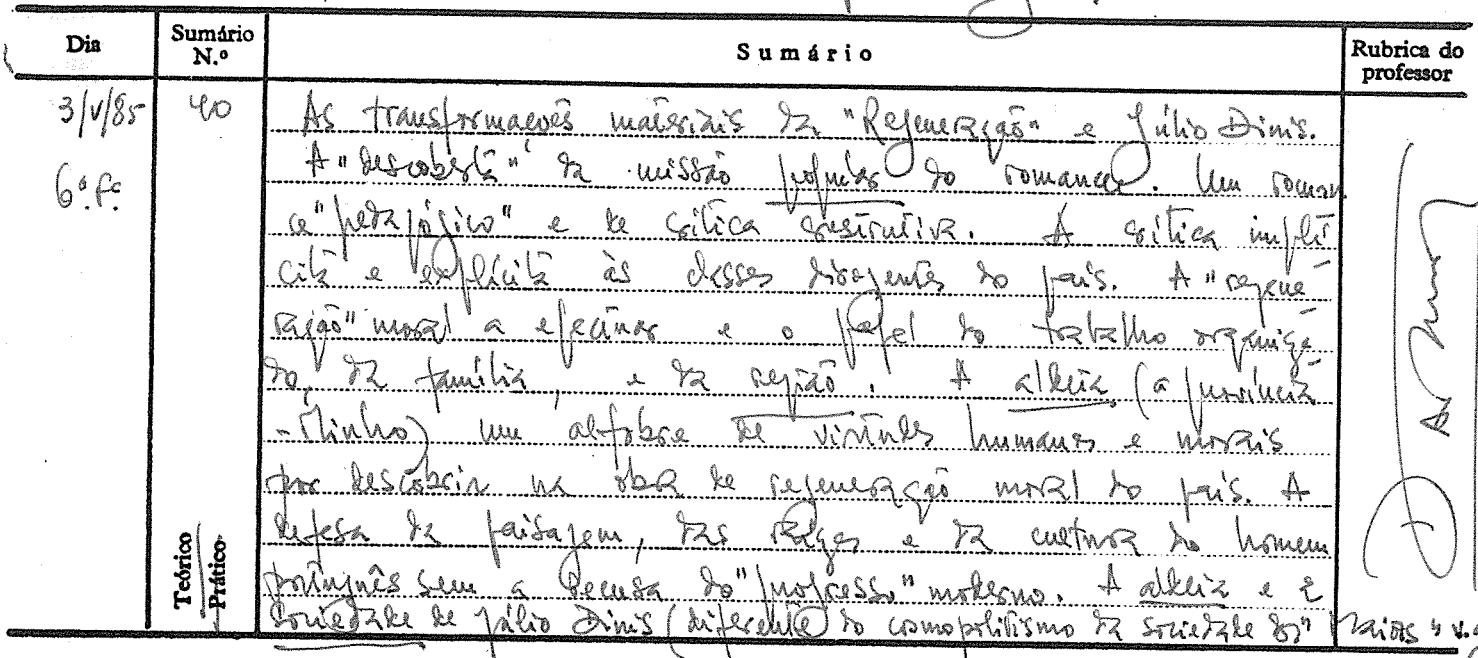 Dia Sumário N.º Sumário Rubrica do professor
3/V/85 40 As transformações materiais da "Regeneração" e Júlio Dinis.
6ª.f. A "descoberta" da missão do romance. Um roman
ce "pedagógico" e de crítica construtiva. A crítica implí
cita e explícita às classes dirigentes do país. A "regene
ração" moral a efectuar e o papel do trabalho organiza
do, da família, e da região. A aldeia (a província
- Minho) um alfobre de virtudes humanas e morais
por descobrir na obra de regeneração moral do país. A
defesa da paisagem, das raízes e da cultura do homem
português sem a recusa do "progresso" moderno. A aldeia e a
Teórico Prático
sociedade de Júlio Dinis (diferente do cosmopolitismo da sociedade dos "Maias"